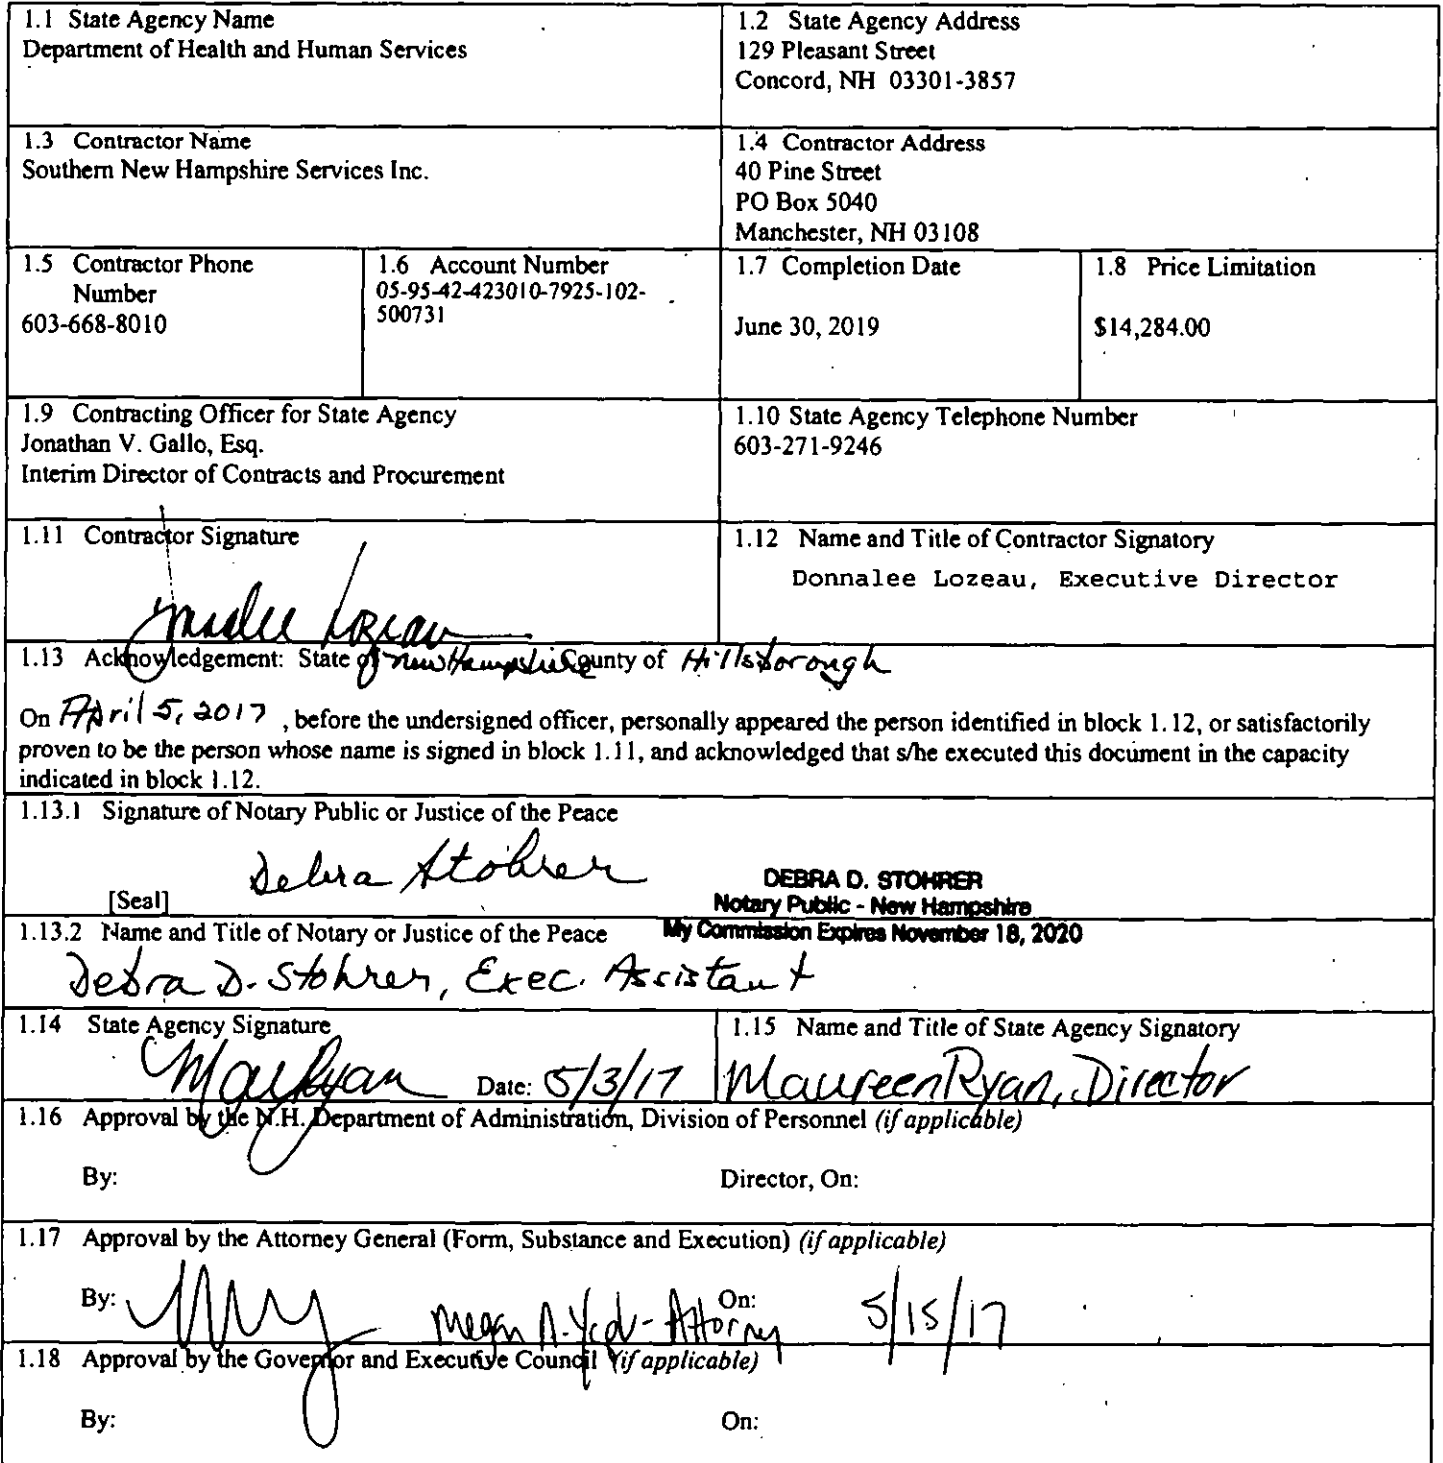 1.1 State Agency Name
Department of Health and Human Services
1.2 State Agency Address
129 Pleasant Street
Concord, NH 03301-3857
1.3 Contractor Name
Southern New Hampshire Services Inc.
1.4 Contractor Address
40 Pine Street
PO Box 5040
Manchester, NH 03108
1.5 Contractor Phone
Number
603-668-8010
1.6 Account Number
05-95-42-423010-7925-102-
500731
1.7 Completion Date
June 30, 2019
1.8 Price Limitation
$14,284.00
1.9 Contracting Officer for State Agency
Jonathan V. Gallo, Esq.
Interim Director of Contracts and Procurement
1.10 State Agency Telephone Number
603-271-9246
1.11 Contractor Signature
Donnalee Lozeau
1.12 Name and Title of Contractor Signatory
Donnalee Lozeau, Executive Director
1.13 Acknowledgement: State of New Hampshire County of Hillsborough
On April 5, 2017 , before the undersigned officer, personally appeared the person identified in block 1.12, or satisfactorily
proven to be the person whose name is signed in block 1.11, and acknowledged that s/he executed this document in the capacity
indicated in block 1.12.
1.13.1 Signature of Notary Public or Justice of the Peace
Debra Stohrer
[Seal]
DEBRA D. STOHRER
Notary Public - New Hampshire
My Commission Expires November 18, 2020
1.13.2 Name and Title of Notary or Justice of the Peace
Debra D. Stohrer, Exec. Assistant
1.14 State Agency Signature
Date: 5/3/17
1.15 Name and Title of State Agency Signatory
Maureen Ryan, Director
1.16 Approval by the N.H. Department of Administration, Division of Personnel (if applicable)
By:
Director, On:
1.17 Approval by the Attorney General (Form, Substance and Execution) (if applicable)
By: Megan A. - Attorney On: 5/15/17
1.18 Approval by the Governor and Executive Council (if applicable)
By:
On: